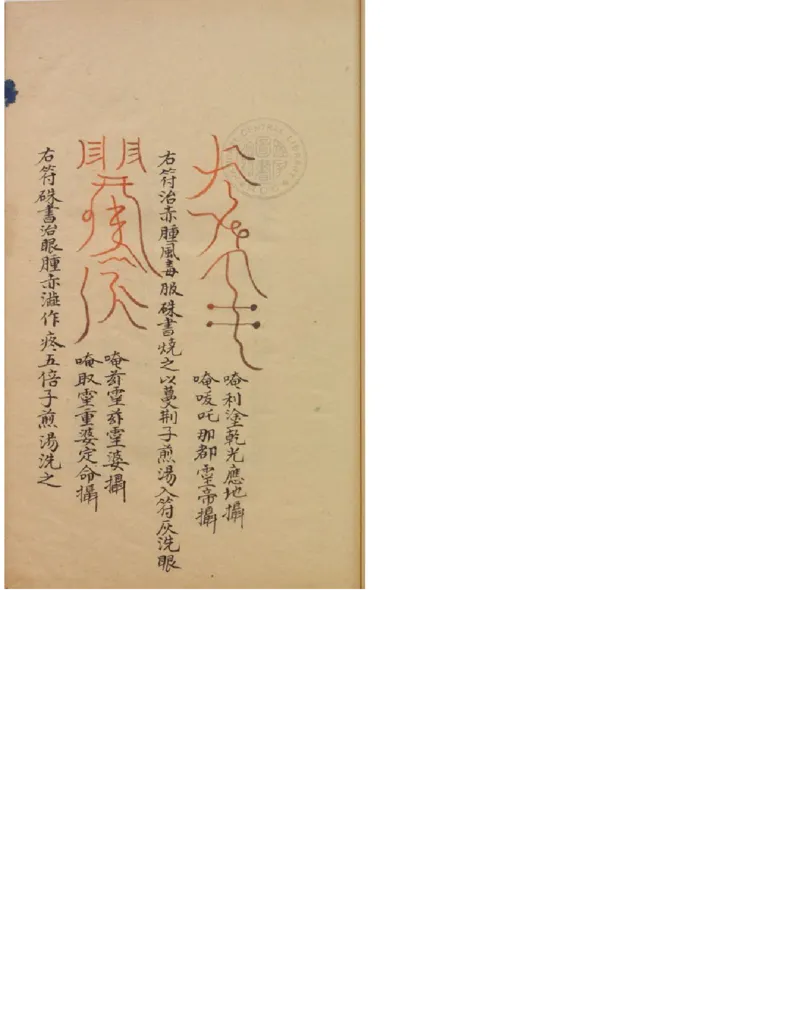 唵利塗乾光應地攝
唵唆吒那都霊帝攝
右符治赤腫風毒服硃書燒之以蔓荆子煎湯入符灰洗眼
唵莽霊莽霊婆攝
唵取霊重婆定命攝
右符硃書治眼腫赤澁作疼五倍子煎湯洗之
CENTRAL LIBRARY